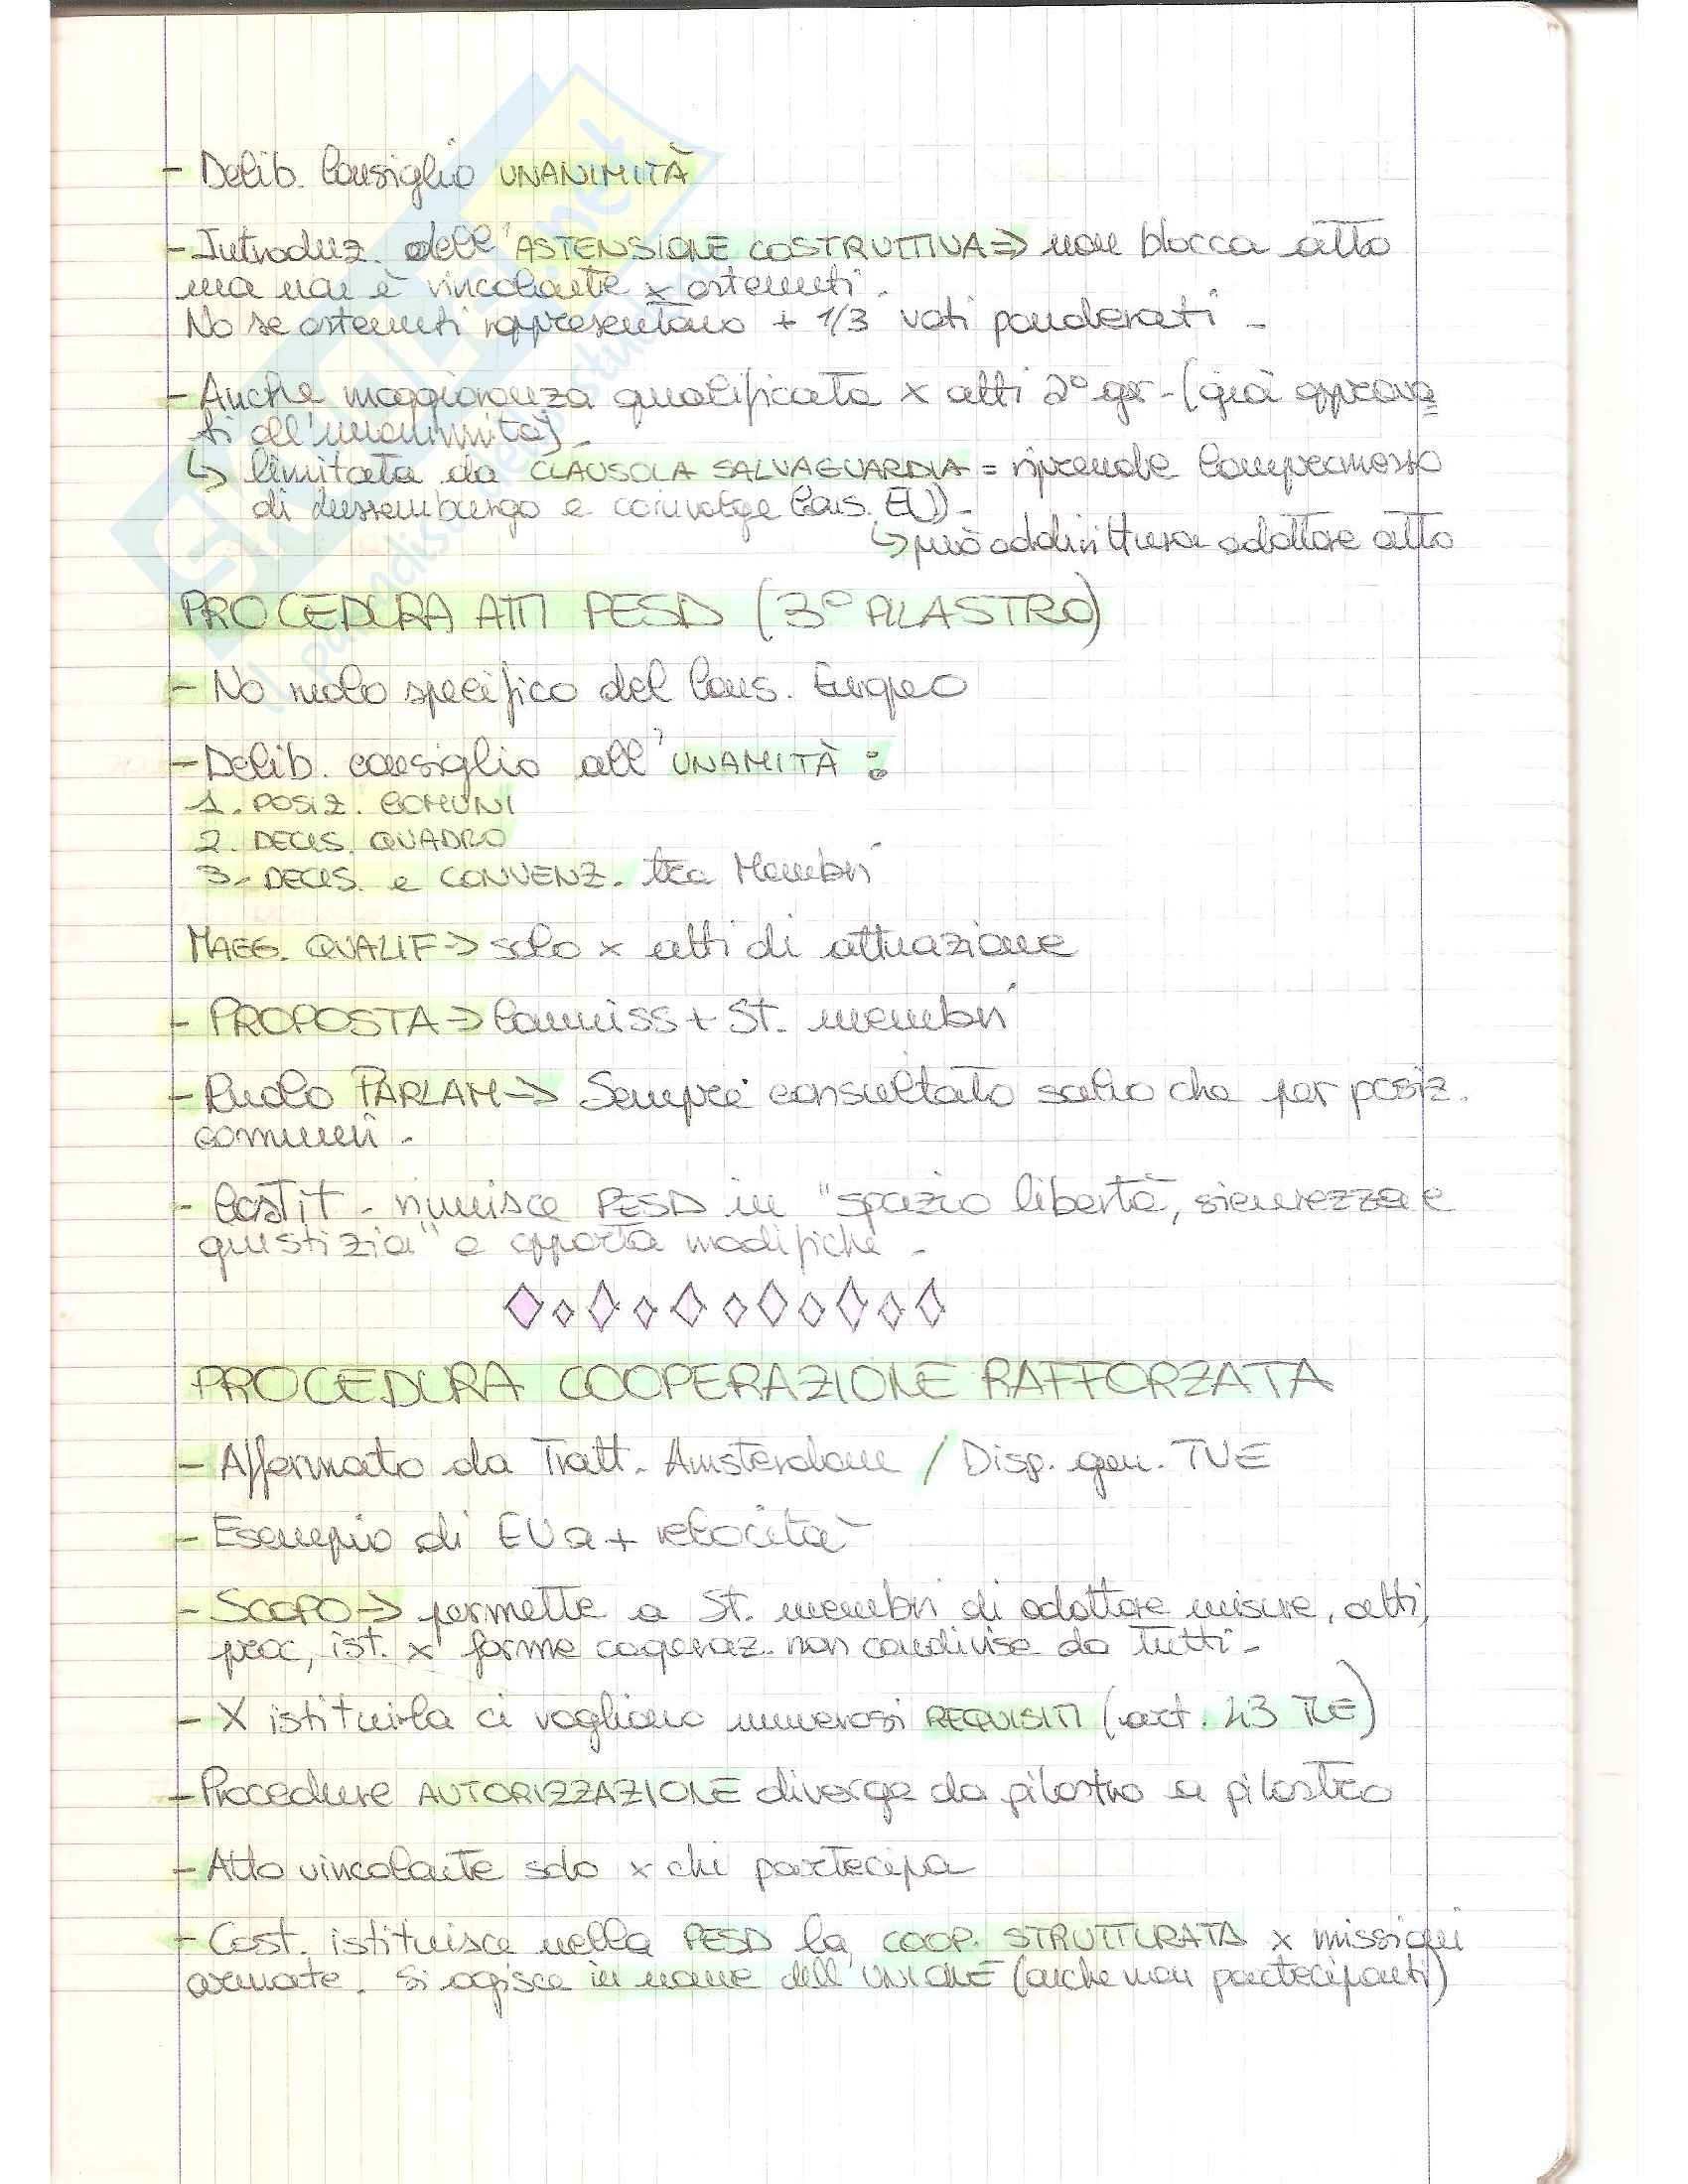 - Delib. Consiglio UNANIMITÀ
- Introduz. dell'ASTENSIONE COSTRUTTIVA => non blocca atto
ma non è vincolante x astenuti.
No se astenuti rappresentano + 1/3 voti ponderati -
- Anche maggioranza qualificata x atti 2° gr - (già approva
ti all'unanimità) -
↳ limitata da CLAUSOLA SALVAGUARDIA = riprende Compromesso
di Lussemburgo e coinvolge Cons. EU) -
↳ può addirittura adottare atto
PROCEDURA ATTI PESD (3° PILASTRO)
- No ruolo specifico del Cons. Europeo
- Delib. consiglio all'UNAMITÀ :
1. POSIZ. COMUNI
2. DECIS. QUADRO
3. DECIS. e CONVENZ. tra Membri
MAGG. QUALIF -> solo x atti di attuazione
- PROPOSTA -> Commiss + St. membri
- Ruolo PARLAM -> Sempre consultato salvo che per posiz.
comuni -
- Costit - riunisce PESD in "spazio libertà, sicurezza e
giustizia" e apporta modifiche -
PROCEDURA COOPERAZIONE RAFFORZATA
- Affermato da Tratt. Amsterdam / Disp. gen. TUE
- Esempio di EU a + velocità
- SCOPO -> permette a St. membri di adottare misure, atti,
proc, ist. x forme cooperaz. non condivise da tutti -
- X istituirla ci vogliono numerosi REQUISITI (art. 43 TUE)
- Procedure AUTORIZZAZIONE diverge da pilastro a pilastro
- Atto vincolante solo x chi partecipa
- Cost. istituisce nella PESD la COOP. STRUTTURATA x missioni
armate. Si agisce in nome dell'UNIONE (anche non partecipanti)